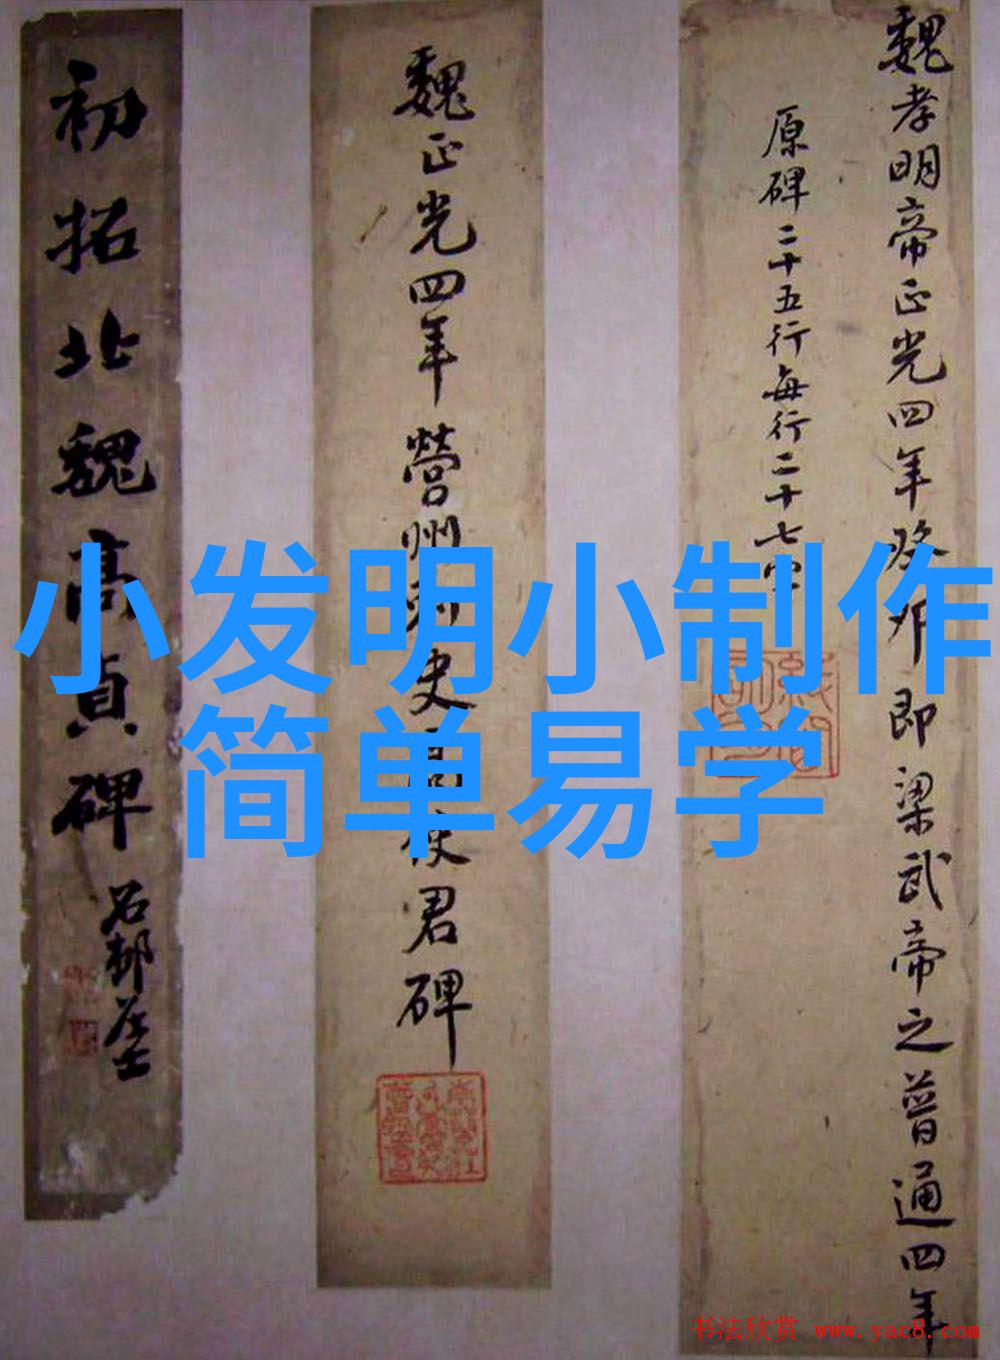 魏孝明帝正光四年癸卯即梁武帝之普通四年
原碑二十五行每行二十七字
魏正光四年營州刺史高使君碑
初拓北魏高貞碑
小发明小制作
简单易学
书法欣赏 www.yac8.com